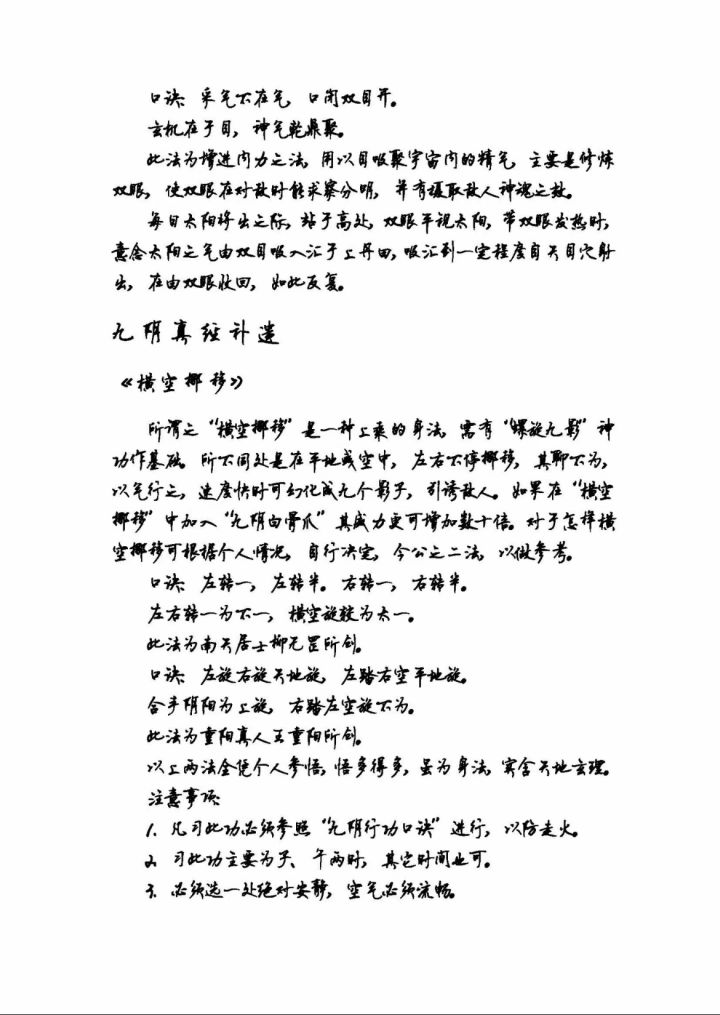 口诀：采气不在气，口闭双目开。
玄机在于目，神气乾鼎聚。
此法为增进内力之法，用以目吸聚宇宙内的精气，主要是修炼
双眼，使双眼在对敌时能求察分明，并有摄取敌人神魂之效。
每日太阳将出之际，站于高处，双眼平视太阳，带双眼发热时，
意念太阳之气由双目吸入汇于上丹田，吸汇到一定程度自天目穴射
出，在由双眼收回，如此反复。
九阴真经补遗
《横空挪移》
所谓之“横空挪移”是一种上乘的身法，需有“螺旋九影”神
功作基础。所不同处是在平地或空中，左右不停挪移，其聊不为，
以气行之，速度快时可幻化成九个影子，引诱敌人。如果在“横空
挪移”中加入“九阴白骨爪”其威力更可增加数十倍。对于怎样横
空挪移可根据个人情况，自行决定，今公之二法，以做参考。
口诀：左转一，左转半。右转一，右转半。
左右转一为不一，横空旋较为太一。
此法为南天居士柳无罡所创。
口诀：左旋右旋天地旋，左踏右空平地旋。
合手阴阳为上旋，右踏左空旋不为。
此法为重阳真人王重阳所创。
以上两法全凭个人参悟，悟多得多，虽为身法，实含天地玄理。
注意事项：
1．凡习此功必须参照“九阴行功口诀”进行，以防走火。
2．习此功主要为子、午两时，其它时间也可。
3．必须选一处绝对安静，空气必须流畅。